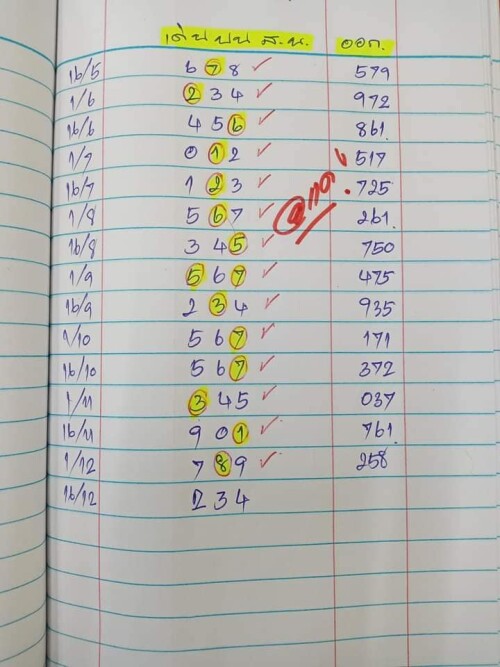 เด่นบน ส.น. ออก.
16/5 678 ✓ 579
1/6 234 ✓ 972
16/6 456 ✓ 861.
1/7 012 ✓ 517
16/7 123 ✓ 725
1/8 567 ✓ 261.
16/8 345 ✓ 750
1/9 567 ✓ 475
16/9 234 ✓ 935
1/10 567 ✓ 171
16/10 567 ✓ 372
1/11 345 ✓ 037
16/11 901 ✓ 761.
1/12 789 ✓ 258
16/12 234